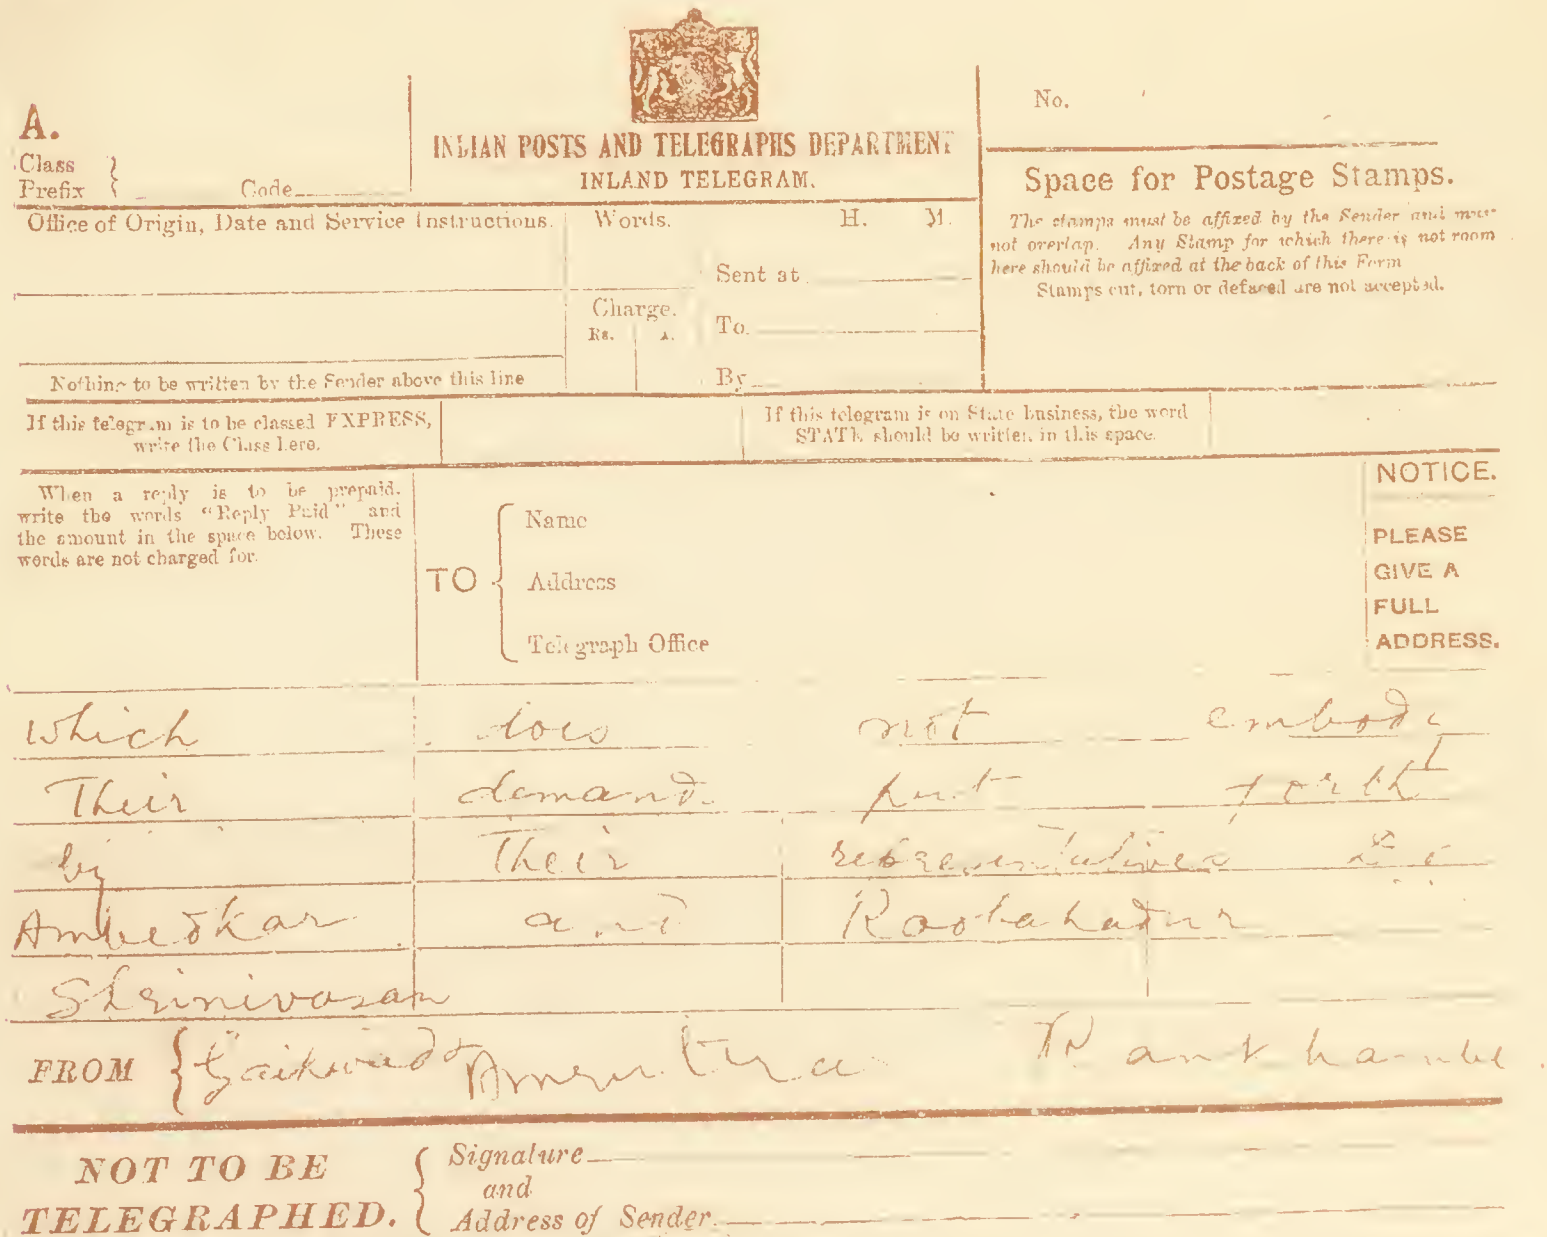 A.
Class
Prefix
Code
INDIAN POSTS AND TELEGRAPHS DEPARTMENT
INLAND TELEGRAM.
No.
Space for Postage Stamps.
The stamps must be affixed by the Sender and must
not overlap. Any Stamp for which there is not room
here should be affixed at the back of this Form
Stamps cut, torn or defaced are not accepted.
Office of Origin, Date and Service Instructions.
Words.
H. M.
Sent at
Charge.
Rs. A.
To
By
Nothing to be written by the Sender above this line
If this telegram is to be classed EXPRESS,
write the Class here.
If this telegram is on State business, the word
STATE should be written in this space.
When a reply is to be prepaid.
write the words "Reply Paid" and
the amount in the space below. These
words are not charged for.
TO
Name
Address
Telegraph Office
NOTICE.
PLEASE
GIVE A
FULL
ADDRESS.
which does not embody
Their demand put forth
by Their representatives
Ambedkar and Raobahadur
Shrinivasan
FROM Gaikwad
NOT TO BE
TELEGRAPHED.
Signature
and
Address of Sender